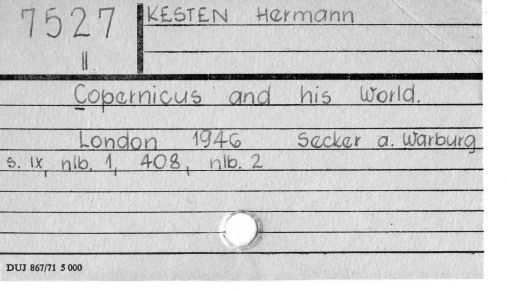 7527 KESTEN Hermann
II
Copernicus and his World.
London 1946 Secker a. Warburg
s. IX, nlb. 1, 408, nlb. 2
DUJ 867/71 5 000